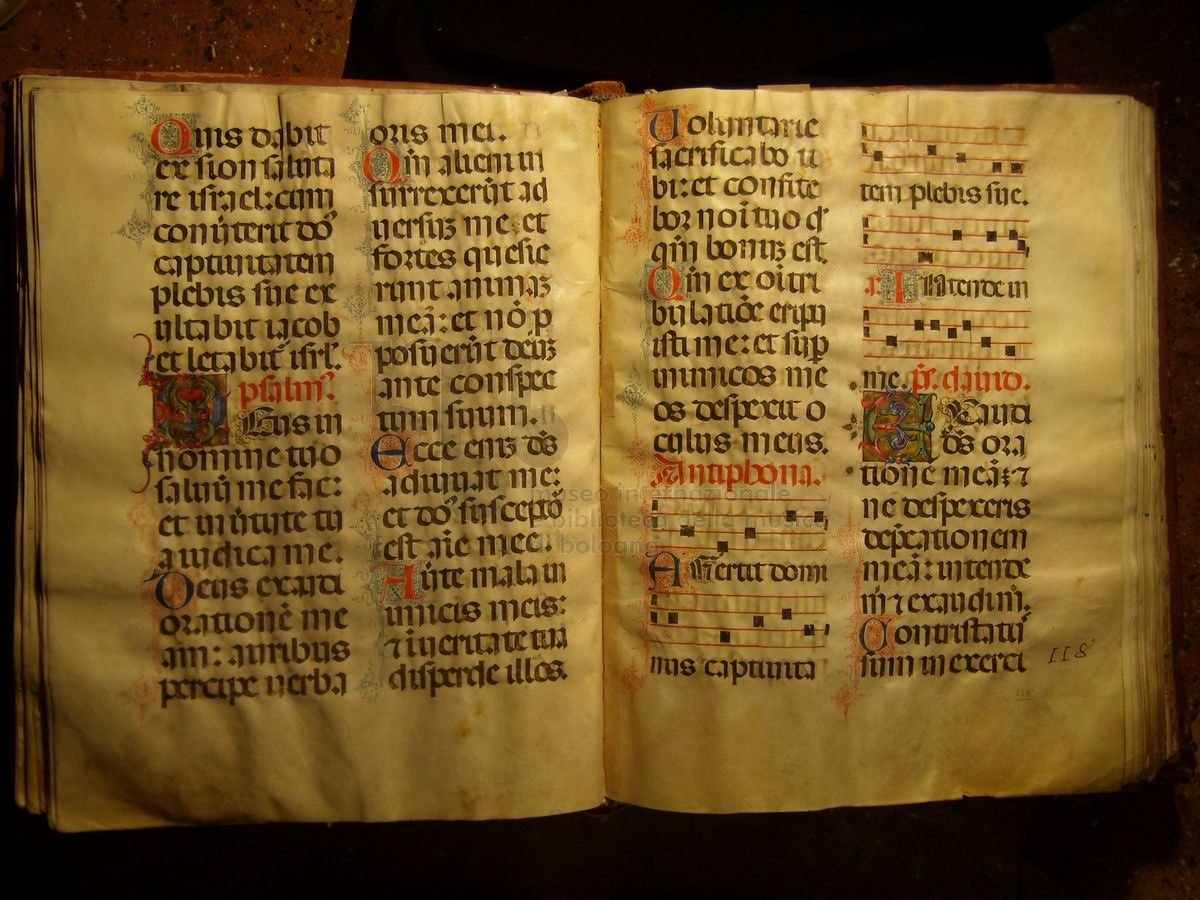 Quis dabit
ex sion saluta
re israel: cum
conũterit dõs
captiuitatem
plebis sue ex
ultabit iacob
et letabit isrl.
psalm᾿
Deus in
nomine tuo
saluũ me fac:
et in ũtute tu
a iudica me.
Deus exaudi
orationẽ me
am: auribus
percipe uerba
oris mei.
Qm̃ alieni in
surrexerũt ad
uersuꝫ me: et
fortes quesie
runt animaꝫ
meã: et nõ p
posuerũt deuꝫ
ante conspec
tum suum.
Ecce eniꝫ dõs
adiuuat me:
et dõs susceptõ
est aĩe mee.
Auerte mala in
imicis meis:
⁊ in ueritate tua
disperde illos.
Uoluntarie
sacrificabo ti
bi: et confite
bor noĩ tuo qͫ
qm̃ bonuꝫ est.
Qm̃ ex oĩ tri
bulatiõe eripu
isti me: et suꝑ
inimicos me
os despexit o
culus meus.
Antiphona.
Auertit domi
nus captiuita
tem plebis sue.
a. Intende in
me. pš. dauid.
Exaudi
dõs ora
tionẽ meãꝫ ⁊
ne despexeris
dep̃cationem
meã: intende
m ⁊ exaudi m.
Contristatũ
sum in exerci
118
118
museo internazionale
e biblioteca della musica
di bologna